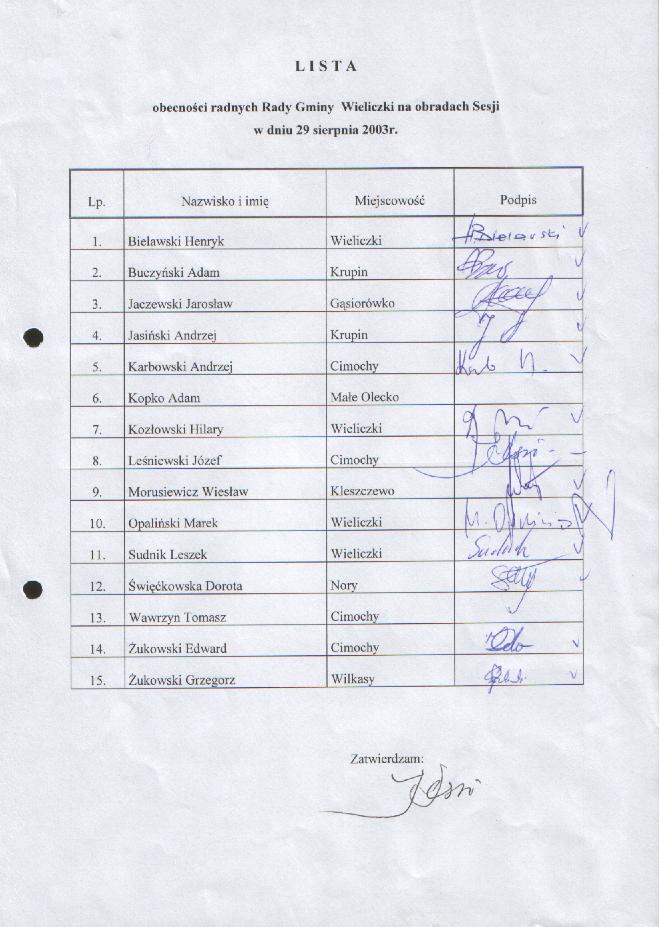 L I S T A
obecności radnych Rady Gminy Wieliczki na obradach Sesji
w dniu 29 sierpnia 2003r.
Lp. Nazwisko i imię Miejscowość Podpis
1. Bielawski Henryk Wieliczki HBielawski
2. Buczyński Adam Krupin
3. Jaczewski Jarosław Gąsiorówko
4. Jasiński Andrzej Krupin
5. Karbowski Andrzej Cimochy
6. Kopko Adam Małe Olecko
7. Kozłowski Hilary Wieliczki
8. Leśniewski Józef Cimochy
9. Morusiewicz Wiesław Kleszczewo
10. Opaliński Marek Wieliczki
11. Sudnik Leszek Wieliczki Sudnik
12. Święćkowska Dorota Nory
13. Wawrzyn Tomasz Cimochy
14. Żukowski Edward Cimochy
15. Żukowski Grzegorz Wilkasy
Zatwierdzam: